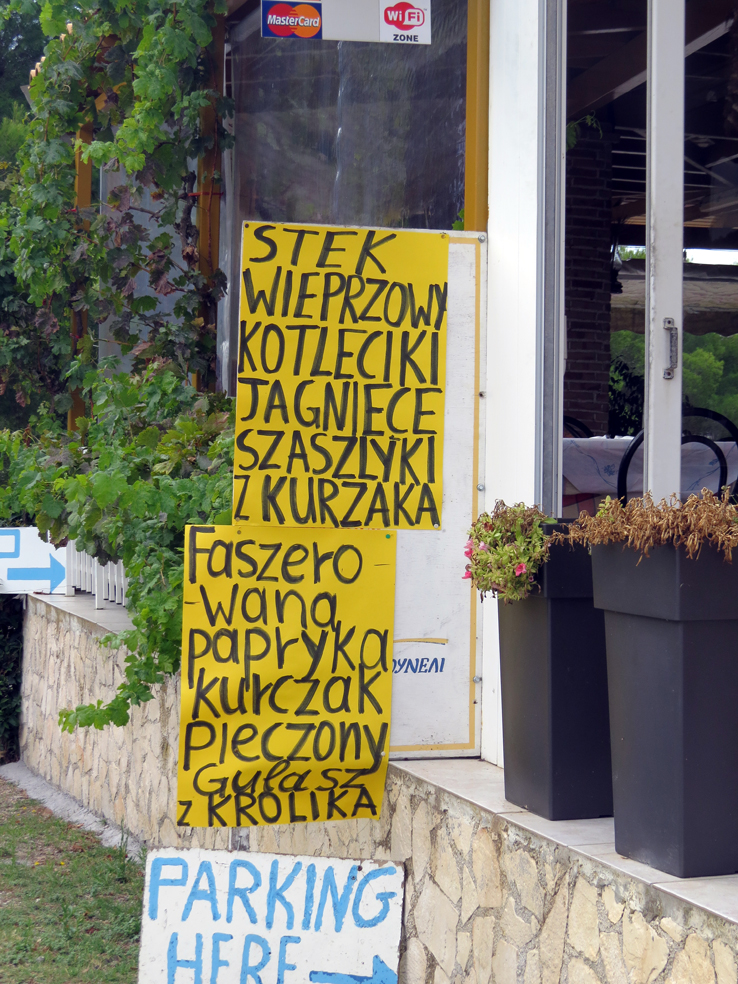 MasterCard
Wi Fi
ZONE
STEK
WIEPRZOWY
KOTLECIKI
JAGNIĘCE
SZASZLYKI
Z KURZAKA
Faszero-
-wana
papryka
kurczak
pieczony
Gulasz
z KRÓLIKA
PARKING
HERE